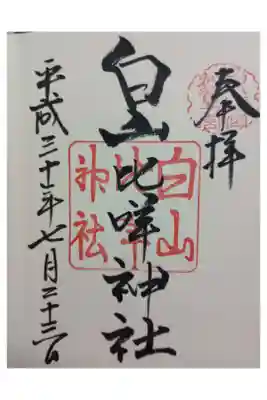 奉拝
白山比咩神社
平成三十年七月二十三日